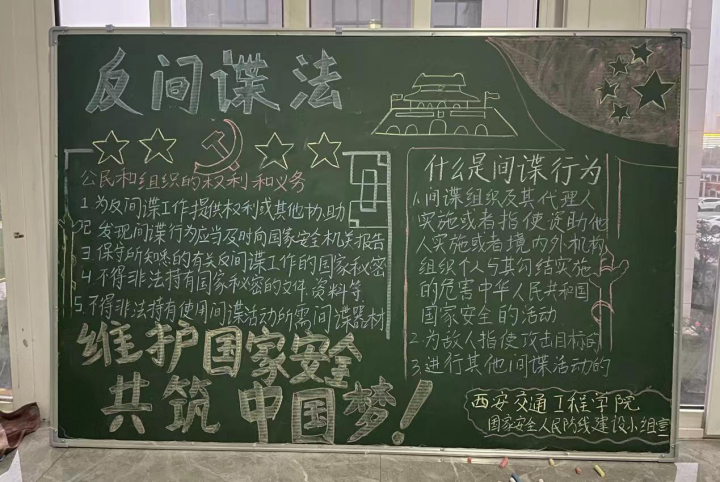 反间谍法
公民和组织的权利和义务
1 为反间谍工作提供权利或其他协助
2 发现间谍行为应当及时向国家安全机关报告
3 保守所知悉的有关反间谍工作的国家秘密
4 不得非法持有国家秘密的文件.资料等
5.不得非法持有使用间谍活动所需间谍器材
维护国家安全
共筑中国梦!
什么是间谍行为
1.间谍组织及其代理人
实施或者指使资助他
人实施或者境内外机构
组织个人与其勾结实施
的危害中华人民共和国
国家安全的活动
2.为敌人指使攻击目标的
3.进行其他间谍活动的
西安交通工程学院
国家安全人民防线建设小组宣